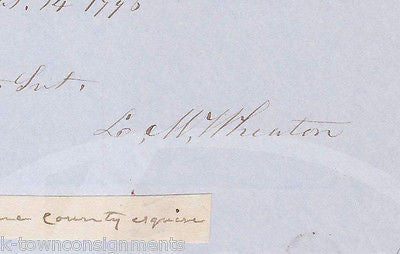 14 1796
Int.
L. M. Wheaton
county esquire
k-townconsignments